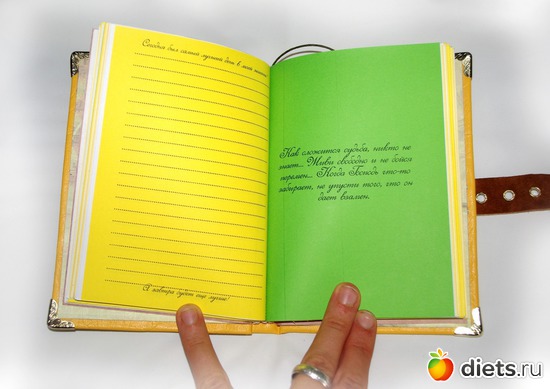 Сегодня был самый лучший день в моей
А завтра будет еще лучше!
Как сложится судьба, никто не
знает... Живи свободно и не бойся
перемен... Когда Господь что-то
забирает, не упусти того, что он
дает взамен.
diets.ru